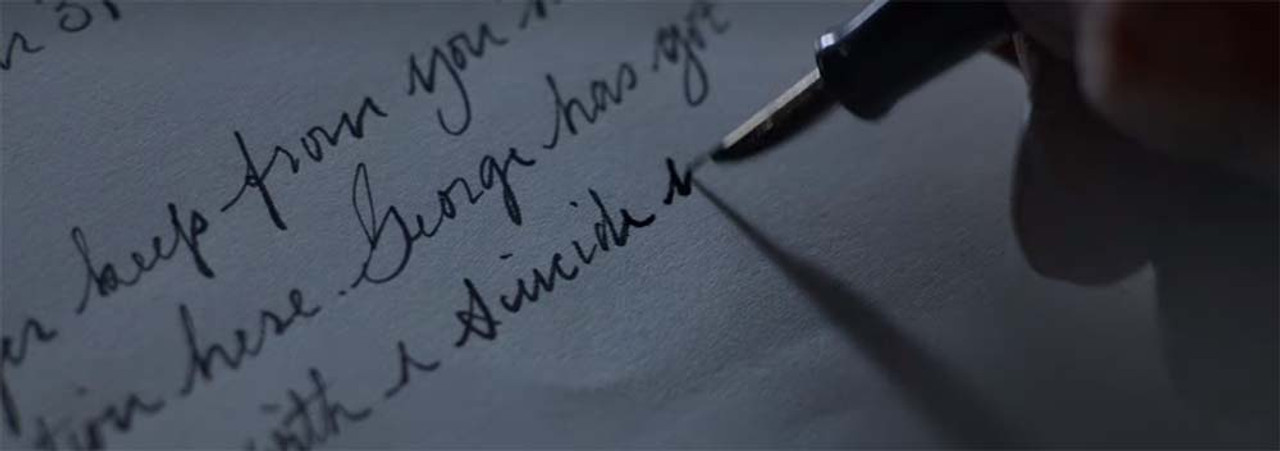 er keep from you
tion here. George has got
with a suicide